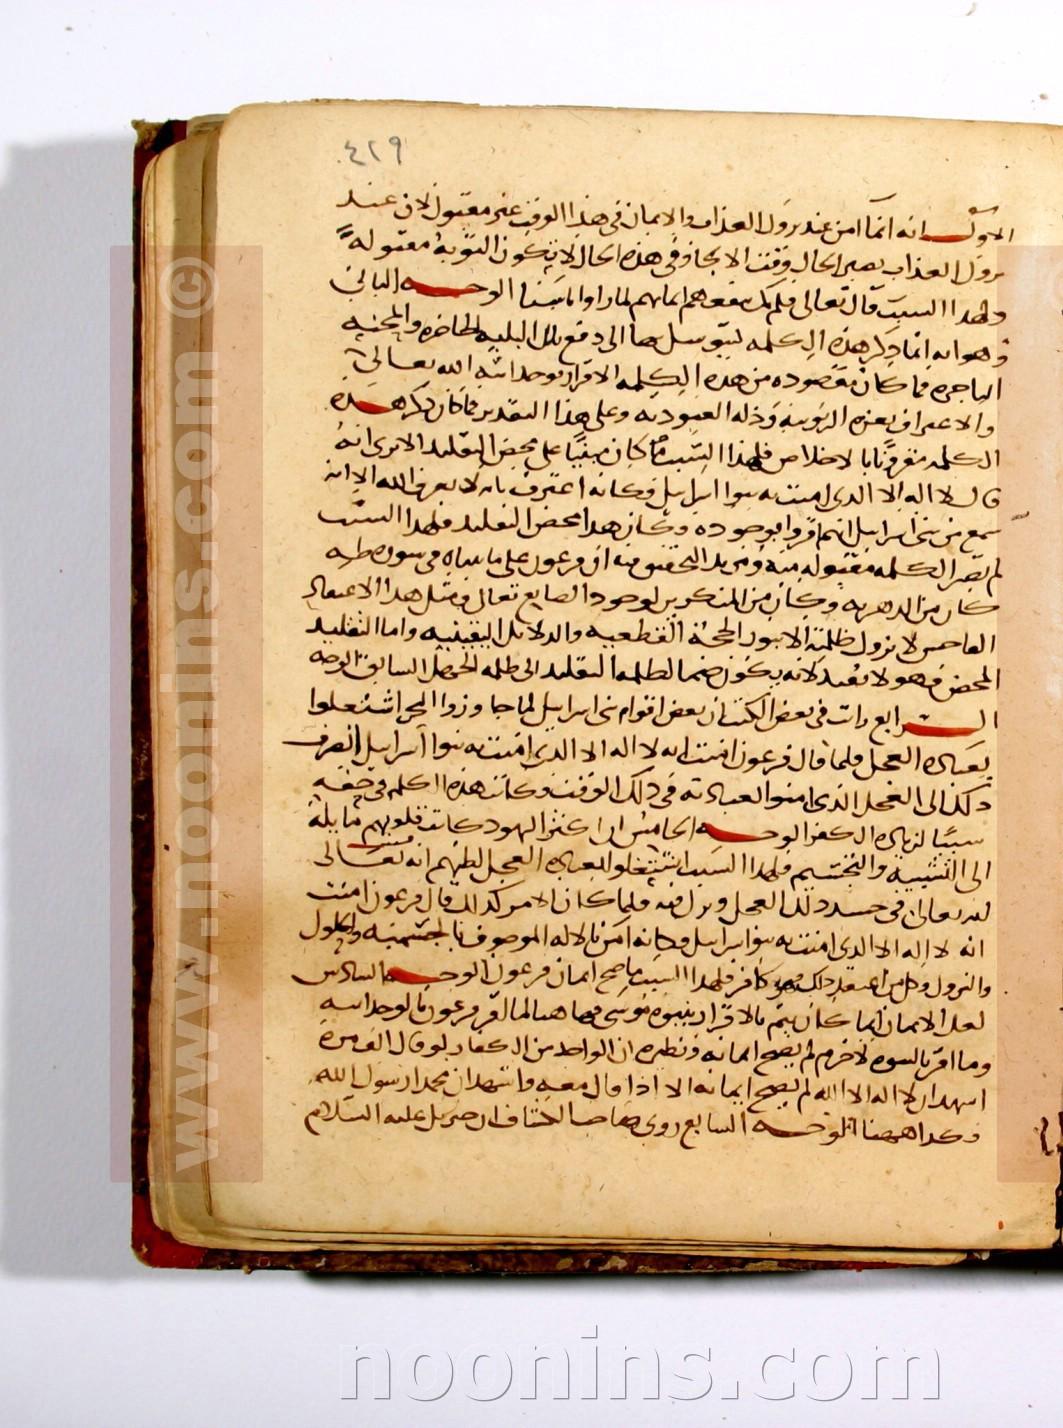 ٤٢٩
الاول انه انما امن عند نزول العذاب والايمان في هذا الوقت غير مقبول لان عند
نزول العذاب يصير الحال وقت الالجا وفي هذه الحال لا تكون التوبة مقبولة
ولهذا السبب قال تعالى فلم يك ينفعهم ايمانهم لما راوا باسنا الوجه الثاني
وهو انه انما ذكر هذه الكلمه ليتوسل بها الى دفع تلك البليه الحاضره والمحنه
الناجزه فما كان مقصوده من هذه الكلمه الاقرار بوحدانية الله تعالى
والاعتراف بعزه الربوبيه وذله العبوديه وعلى هذا التقدير فما كان ذكر هذه
الكلمه مقرونا بالاخلاص فلهذا السبب ما كان مبنيا على محض التقليد الا ترى انه
قال لا اله الا الذي امنت به بنوا اسرايل فكانه اعترف بانه لا يعرف الله الا انه
سمع من بني اسرايل انهم اقروا بوجوده وكان هذا محض التقليد فلهذا السبب
لم تصر الكلمه مقبوله منه ومزيد التحقيق فيه ان فرعون على ما بيناه في سوره طه
كان من الدهريه وكان من المنكرين لوجود الصانع تعالى ومثل هذا الاعتقاد
الفاحش لا تزول ظلمته الا بنور الحجة القطعيه والدلائل اليقينيه واما التقليد
المحض فهو لا يفيد لانه يكون ضما لظلمه التقليد الى ظلمه الجهل السابق الوجه
الرابع رايت في بعض الكتب ان بعض اقوام بني اسرايل لما جاوزوا البحر اشتغلوا
بعباده العجل فلما قال فرعون امنت انه لا اله الا الذي امنت به بنوا اسرايل انصرف
ذلك الى العجل الذي امنوا بعبادته في ذلك الوقت فكانت هذه الكلمه في حقه
سببا لزياده الكفر الوجه الخامس ان اكثر اليهود كانت قلوبهم مايلة
الى التشبيه والتجسيم ولهذا السبب اشتغلوا بعباده العجل لظنهم انه تعالى
حل في جسد ذلك العجل ونزل فيه فلما كان الامر كذلك قال فرعون امنت
انه لا اله الا الذي امنت به بنوا اسرايل فكانه امن بالاله الموصوف بالجسميه والحلول
والنزول وكل من اعتقد ذلك فهو كافر فلهذا السبب ما صح ايمان فرعون الوجه السادس
لعل الايمان انما كان يتم بالاقرار بنبوة موسى فهاهنا لما اقر فرعون بالوحدانيه
وما اقر بالنبوه لا جرم لم يصح ايمانه ونظيره ان الواحد من الكفار لو قال الف مرة
اشهد ان لا اله الا الله لم يصح ايمانه الا اذا قال معه واشهد ان محمدا رسول الله
وكذا ههنا الوجه السابع روى صاحب الكشاف ان جبريل عليه السلام
www.noonins.com ©
noonins.com